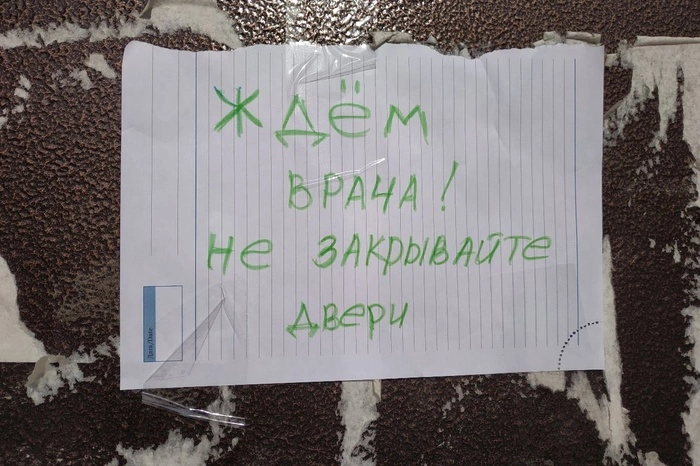 Ждём
ВРАЧА!
не ЗАКРЫВАЙТЕ
двери
Дата/Date